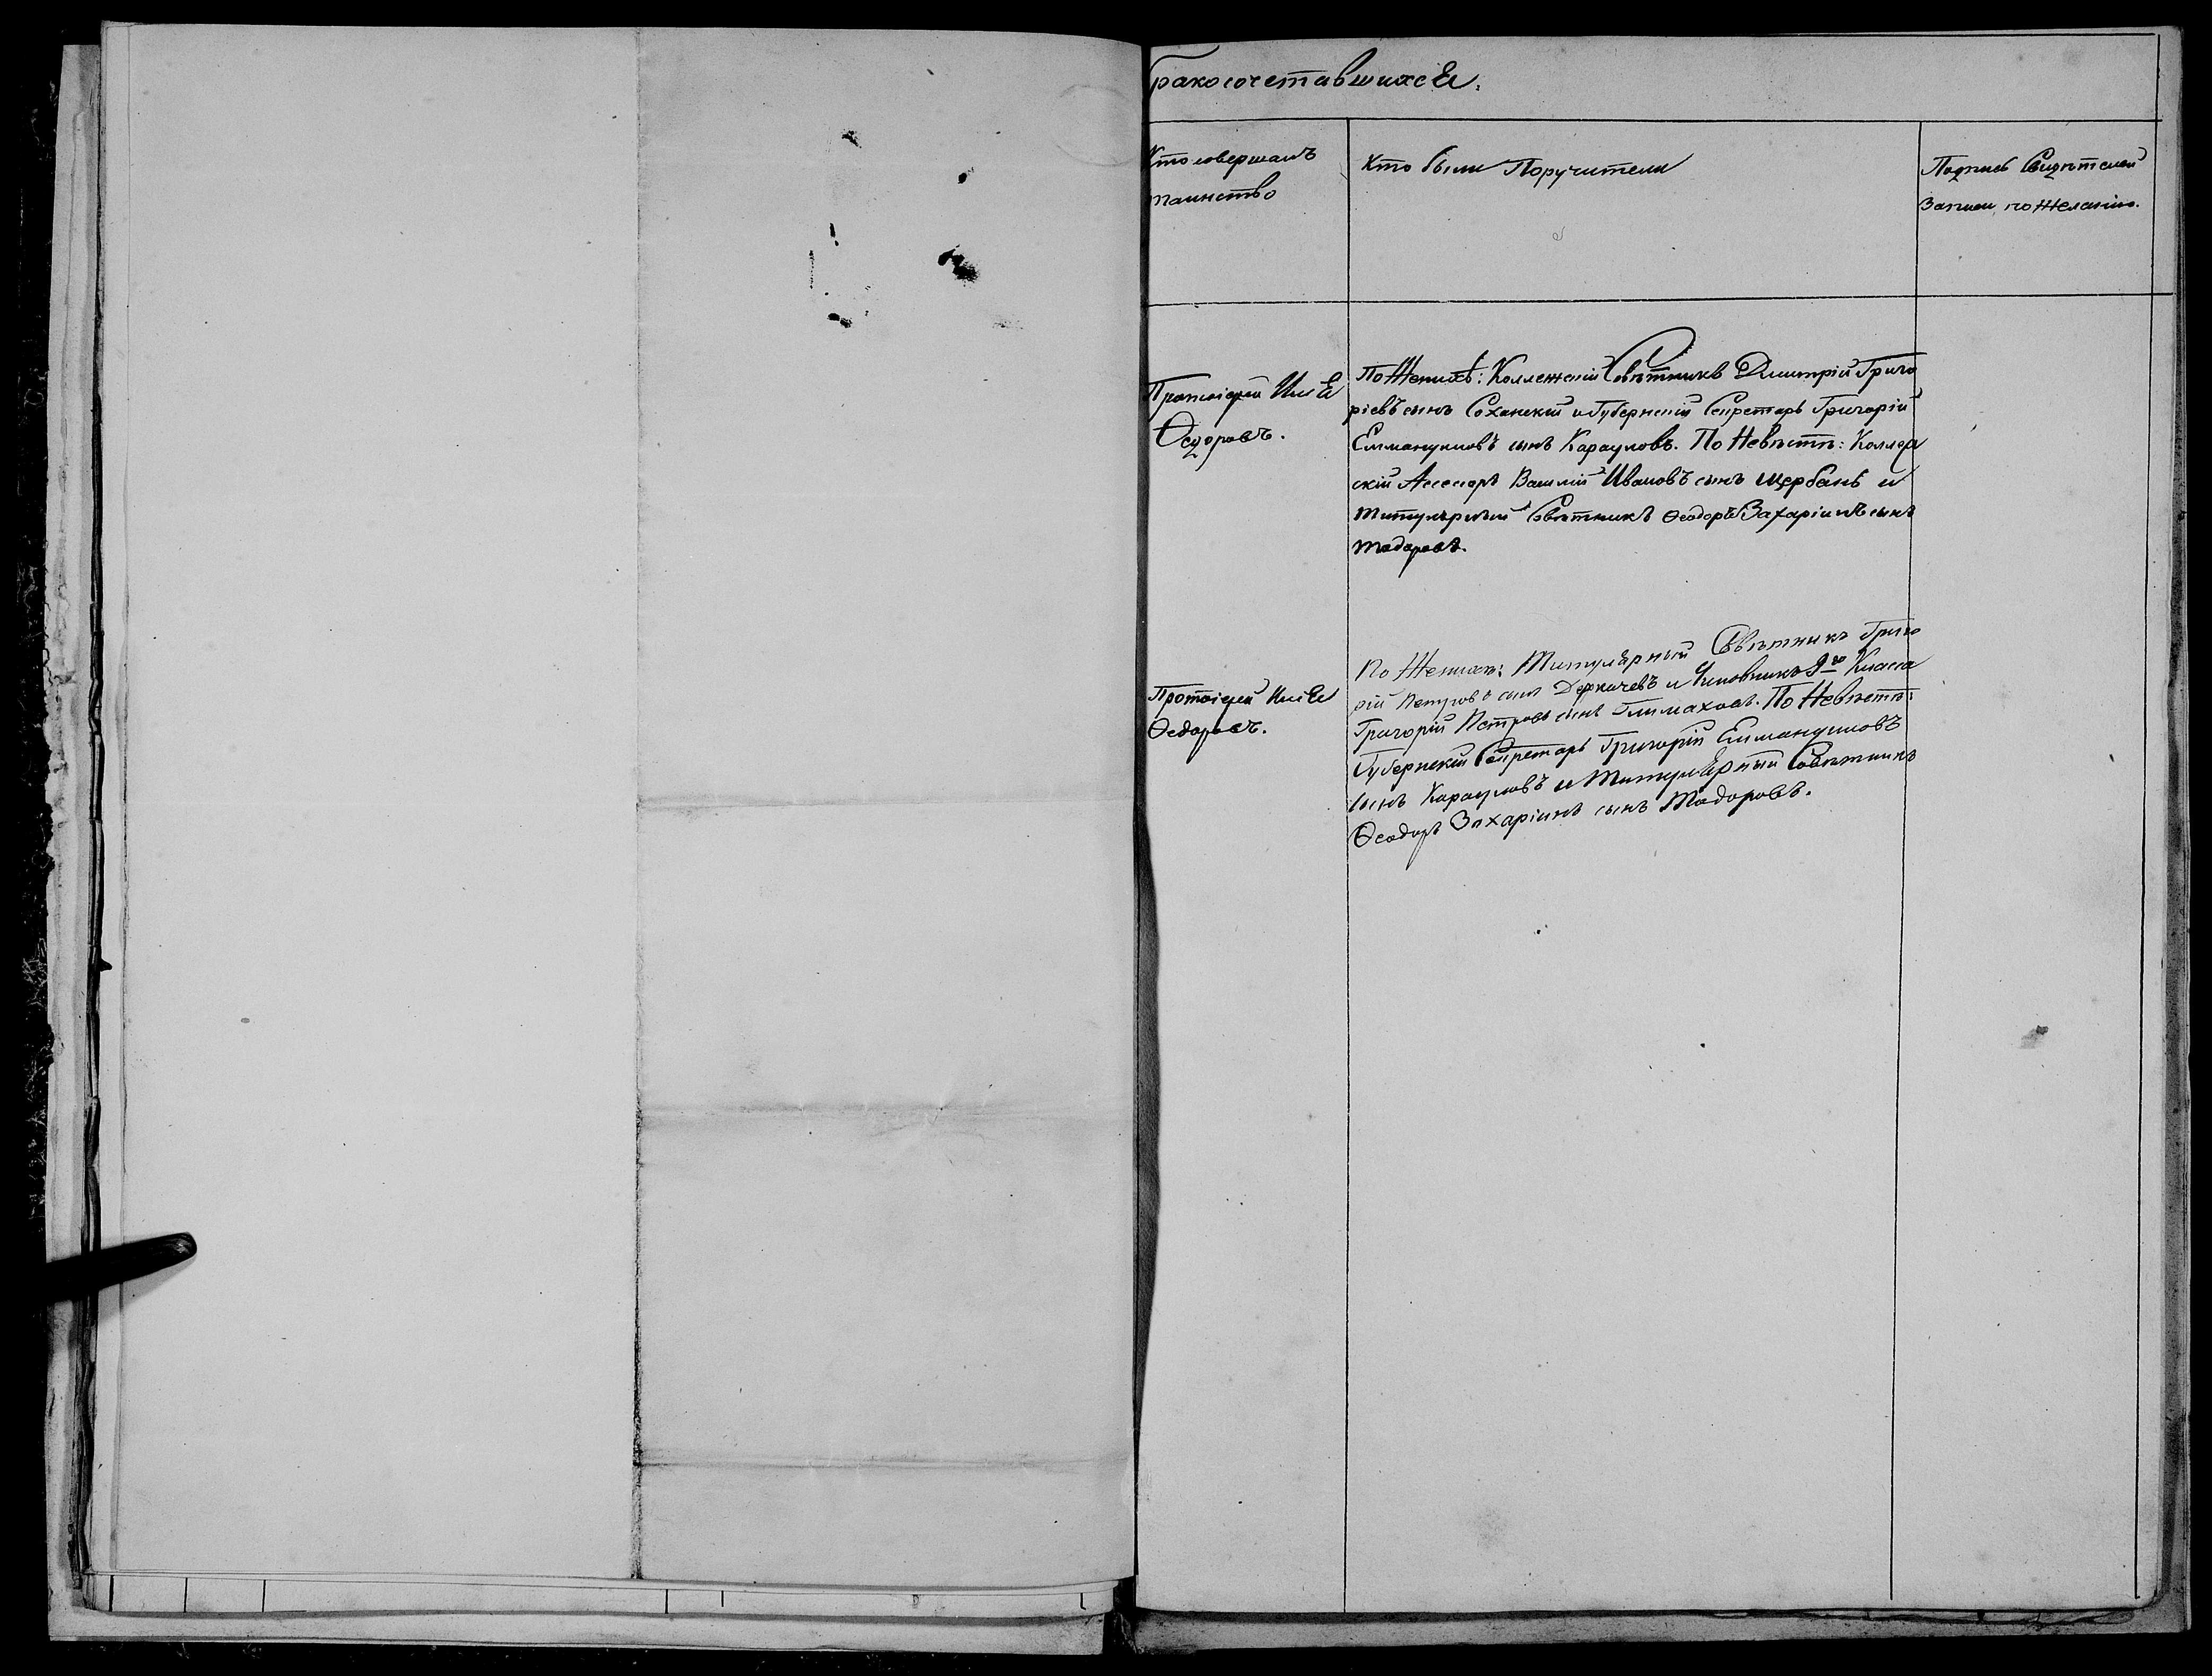 бракосочетавшихся.
Кто совершалъ
таинство
Кто были Поручители
Подпись Свидѣтелей
Записи по желанію.
Протоіерей Илія
Ѳедоровъ.
По Женихѣ: Коллежскій Совѣтникъ Димитрій Григо
ріевъ сынъ Соханскій и Губернскій Секретарь Григорій
Еммануиловъ сынъ Карауловъ. По Невѣстѣ: Коллеж
скій Ассесоръ Василій Ивановъ сынъ Щербань и
Титулярный Совѣтникъ Ѳеодоръ Захаріинъ сынъ
Тодоровъ.
Протоіерей Илія
Ѳедоровъ.
По Женихѣ: Титулярный Совѣтникъ Григо
рій Петровъ сынъ Деркачевъ и Чиновникъ 9го Класса
Григорій Петровъ сынъ По Невѣстѣ:
Губернскій Секретарь Григорій Еммануиловъ
сынъ Карауловъ и Титулярный Совѣтникъ
Ѳеодоръ Захаріинъ сынъ Тодоровъ.